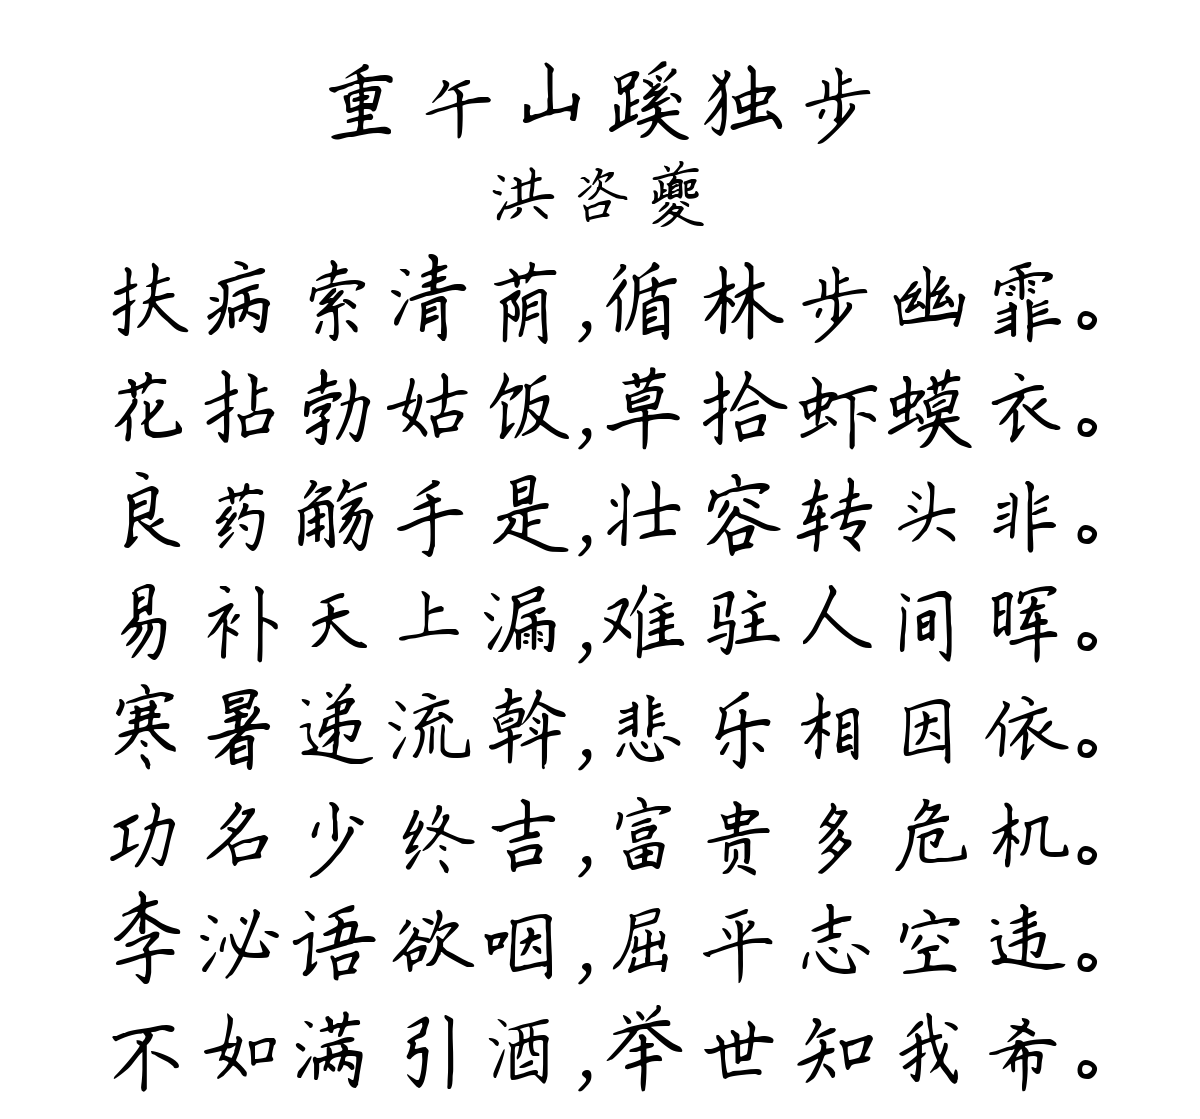 重午山蹊独步
洪咨夔
扶病索清荫,循林步幽霏。
花拈勃姑饭,草拾虾蟆衣。
良药觞手是,壮容转头非。
易补天上漏,难驻人间晖。
寒暑递流斡,悲乐相因依。
功名少终吉,富贵多危机。
李泌语欲咽,屈平志空违。
不如满引酒,举世知我希。